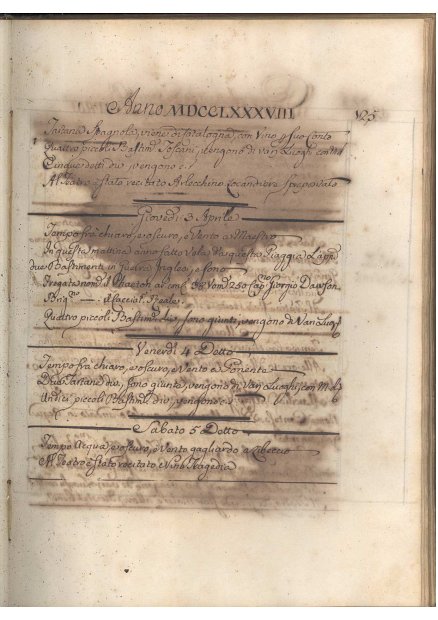 Anno MDCCLXXXVIII 125
Tartana Spagnola, viene di Catalogna, con Vino p suo Conto
Quattro piccoli Bastim. Toscani, vengono di vari Luoghi con
div. vengono e
Al Teatro è stato recitato Arlecchino Locandiera spropositato
Giovedì 3 Aprile
Tempo fra chiaro, e oscuro, e Vento a Maestro
In questa mattina anno fatto Vela da questa Piaggia
due Bastimenti in guerra Inglesi, e sono
Fregata nom. il Phaeton al com. 38 Vom. 250 Cap. Giorgio Dawson
Brig.
Quattro piccoli Bastim. div. sono giunti, vengono di Vari Luoghi
Venerdì 4 Detto
Tempo fra chiaro, e oscuro, e Vento a Ponente
Due Tartane div. sono giunte, vengono di Vari Luoghi, con
Undici piccoli Bastim. div. vengono e
Sabato 5 Detto
Tempo Acqua, e oscuro, e Vento gagliardo a Libeccio
Al Teatro è stato recitato Una Tragedia